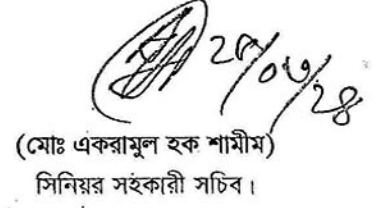 ২৮/০৩/২৪
(মোঃ একরামুল হক শামীম)
সিনিয়র সহকারী সচিব।